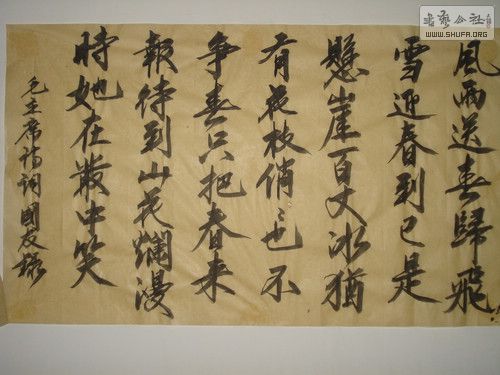 風雨送春歸飛
雪迎春到已是
懸崖百丈冰猶
有花枝俏々也不
争春只把春来
報待到山花爛漫
時她在叢中笑
毛主席詩詞國友錄
書藝公社
WWW.SHUFA.ORG